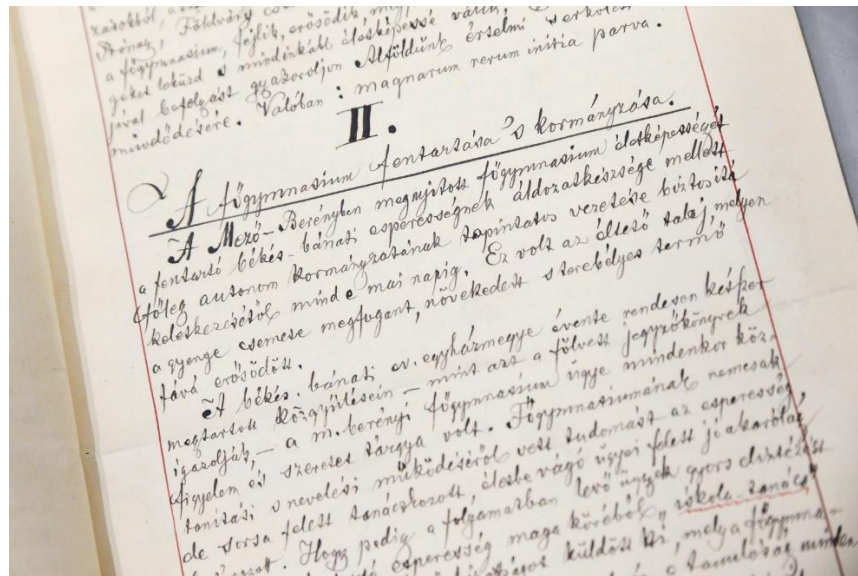 zásoktól, a
Trónaz, Földváry
a főgymnasium, fejlik, erősödik, meg
géket lekűzd s mindinkább életképessé válik,
jával befolyást gyakoroljon Alföldünk értelmi s erkölcsi
mivelődésére. Valóban: magnarum rerum initia parva.
II.
A főgymnasium fentartása 's kormányzása.
A Mező-Berényben megnyitott főgymnasium életképességét
a fentartó békés-bánáti esperességnek áldozatkészsége mellett
főleg autonom kormányzatának tapintatos vezetése biztosítá
keletkezésétől mind e mai napig. Ez volt az éltető talaj, melyen
a gyenge csemete megfogant, növekedett s terebélyes termő
fává erősödött.
A békés-bánáti ev. egyházmegye évente rendesen kétszer
megtartott közgyűlésein – mint azt a fölvett jegyzőkönyvek
igazolják, – a m. berényi főgymnasium ügye mindenkor köz-
figyelem és szeretet tárgya volt. Főgymnasiumának nemcsak
tanítási s nevelési működéséről vett tudomást az esperesség,
de sorsa felett tanácskozott, életbe vágó ügyei felett jóakarólag
Hogy pedig a folyamatban levő ügyek gyors elintézést
esperesség maga köréből „iskola-tanács"
küldött ki, mely a főgymna-
a tanulóság minden